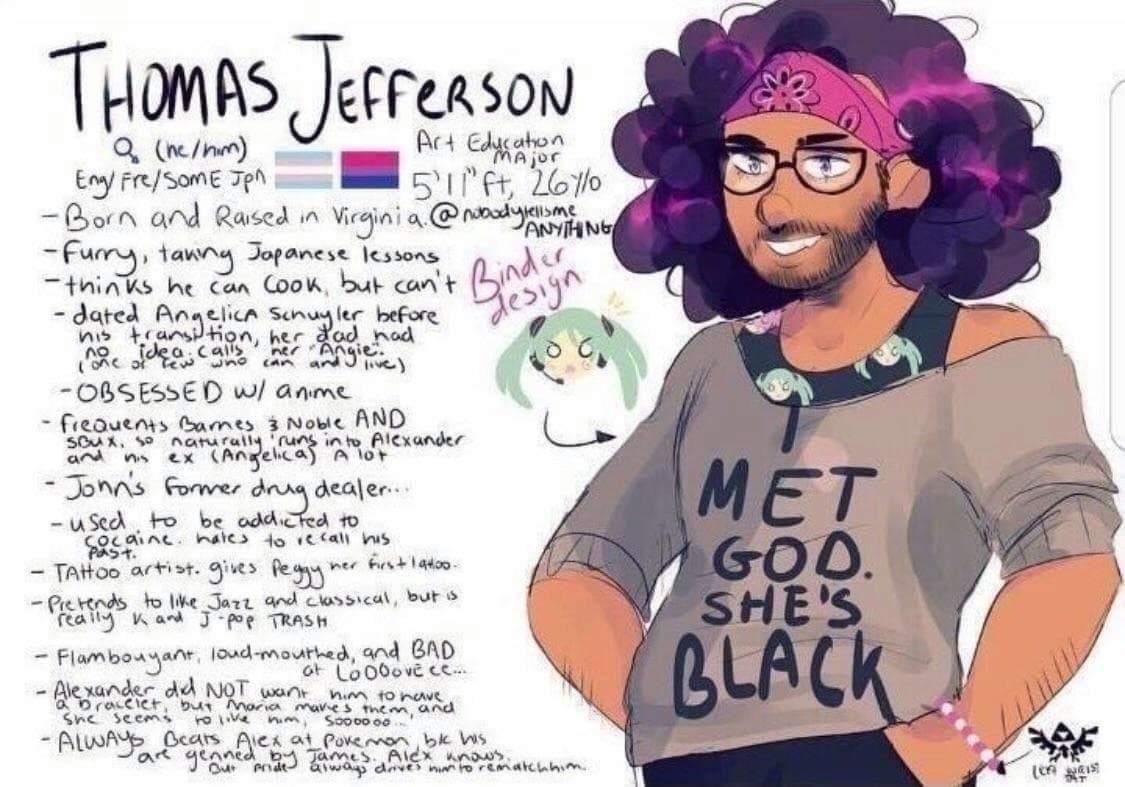 THOMAS JEFFERSON
(he/him)
Eng/Fre/SOME Jpn
Art Education
MAjor
5'11" ft, 26y/o
- Born and Raised in Virginia. @nobodytellsme
ANYTHING
- Furry, taking Japanese lessons
- thinks he can Cook, but can't
Binder
design
- dated Angelica Schuyler before
his transition, her dad had
no idea. calls her "Angie".
(one of few who can and live)
- OBSESSED w/ anime
- frequents Barnes & Noble AND
SBUX, so naturally runs into Alexander
and his ex (Angelica) A lot
- John's former drug dealer...
- used to be addicted to
cocaine. hates to recall his
past.
- TAttoo artist. gives Peggy her first tattoo.
- Pretends to like Jazz and classical, but is
really K and J-pop TRASH
- Flambouyant, loud-mouthed, and BAD
at LoOOove ee...
- Alexander did NOT want him to have
a bracelet, but Maria makes them, and
she seems to like him, Soooooo...
- ALWAYS Beats Alex at Pokemon, b/c his
are genned by James. Alex knows.
But Pride always drives him to rematch him.
I
MET
GOD.
SHE'S
BLACK